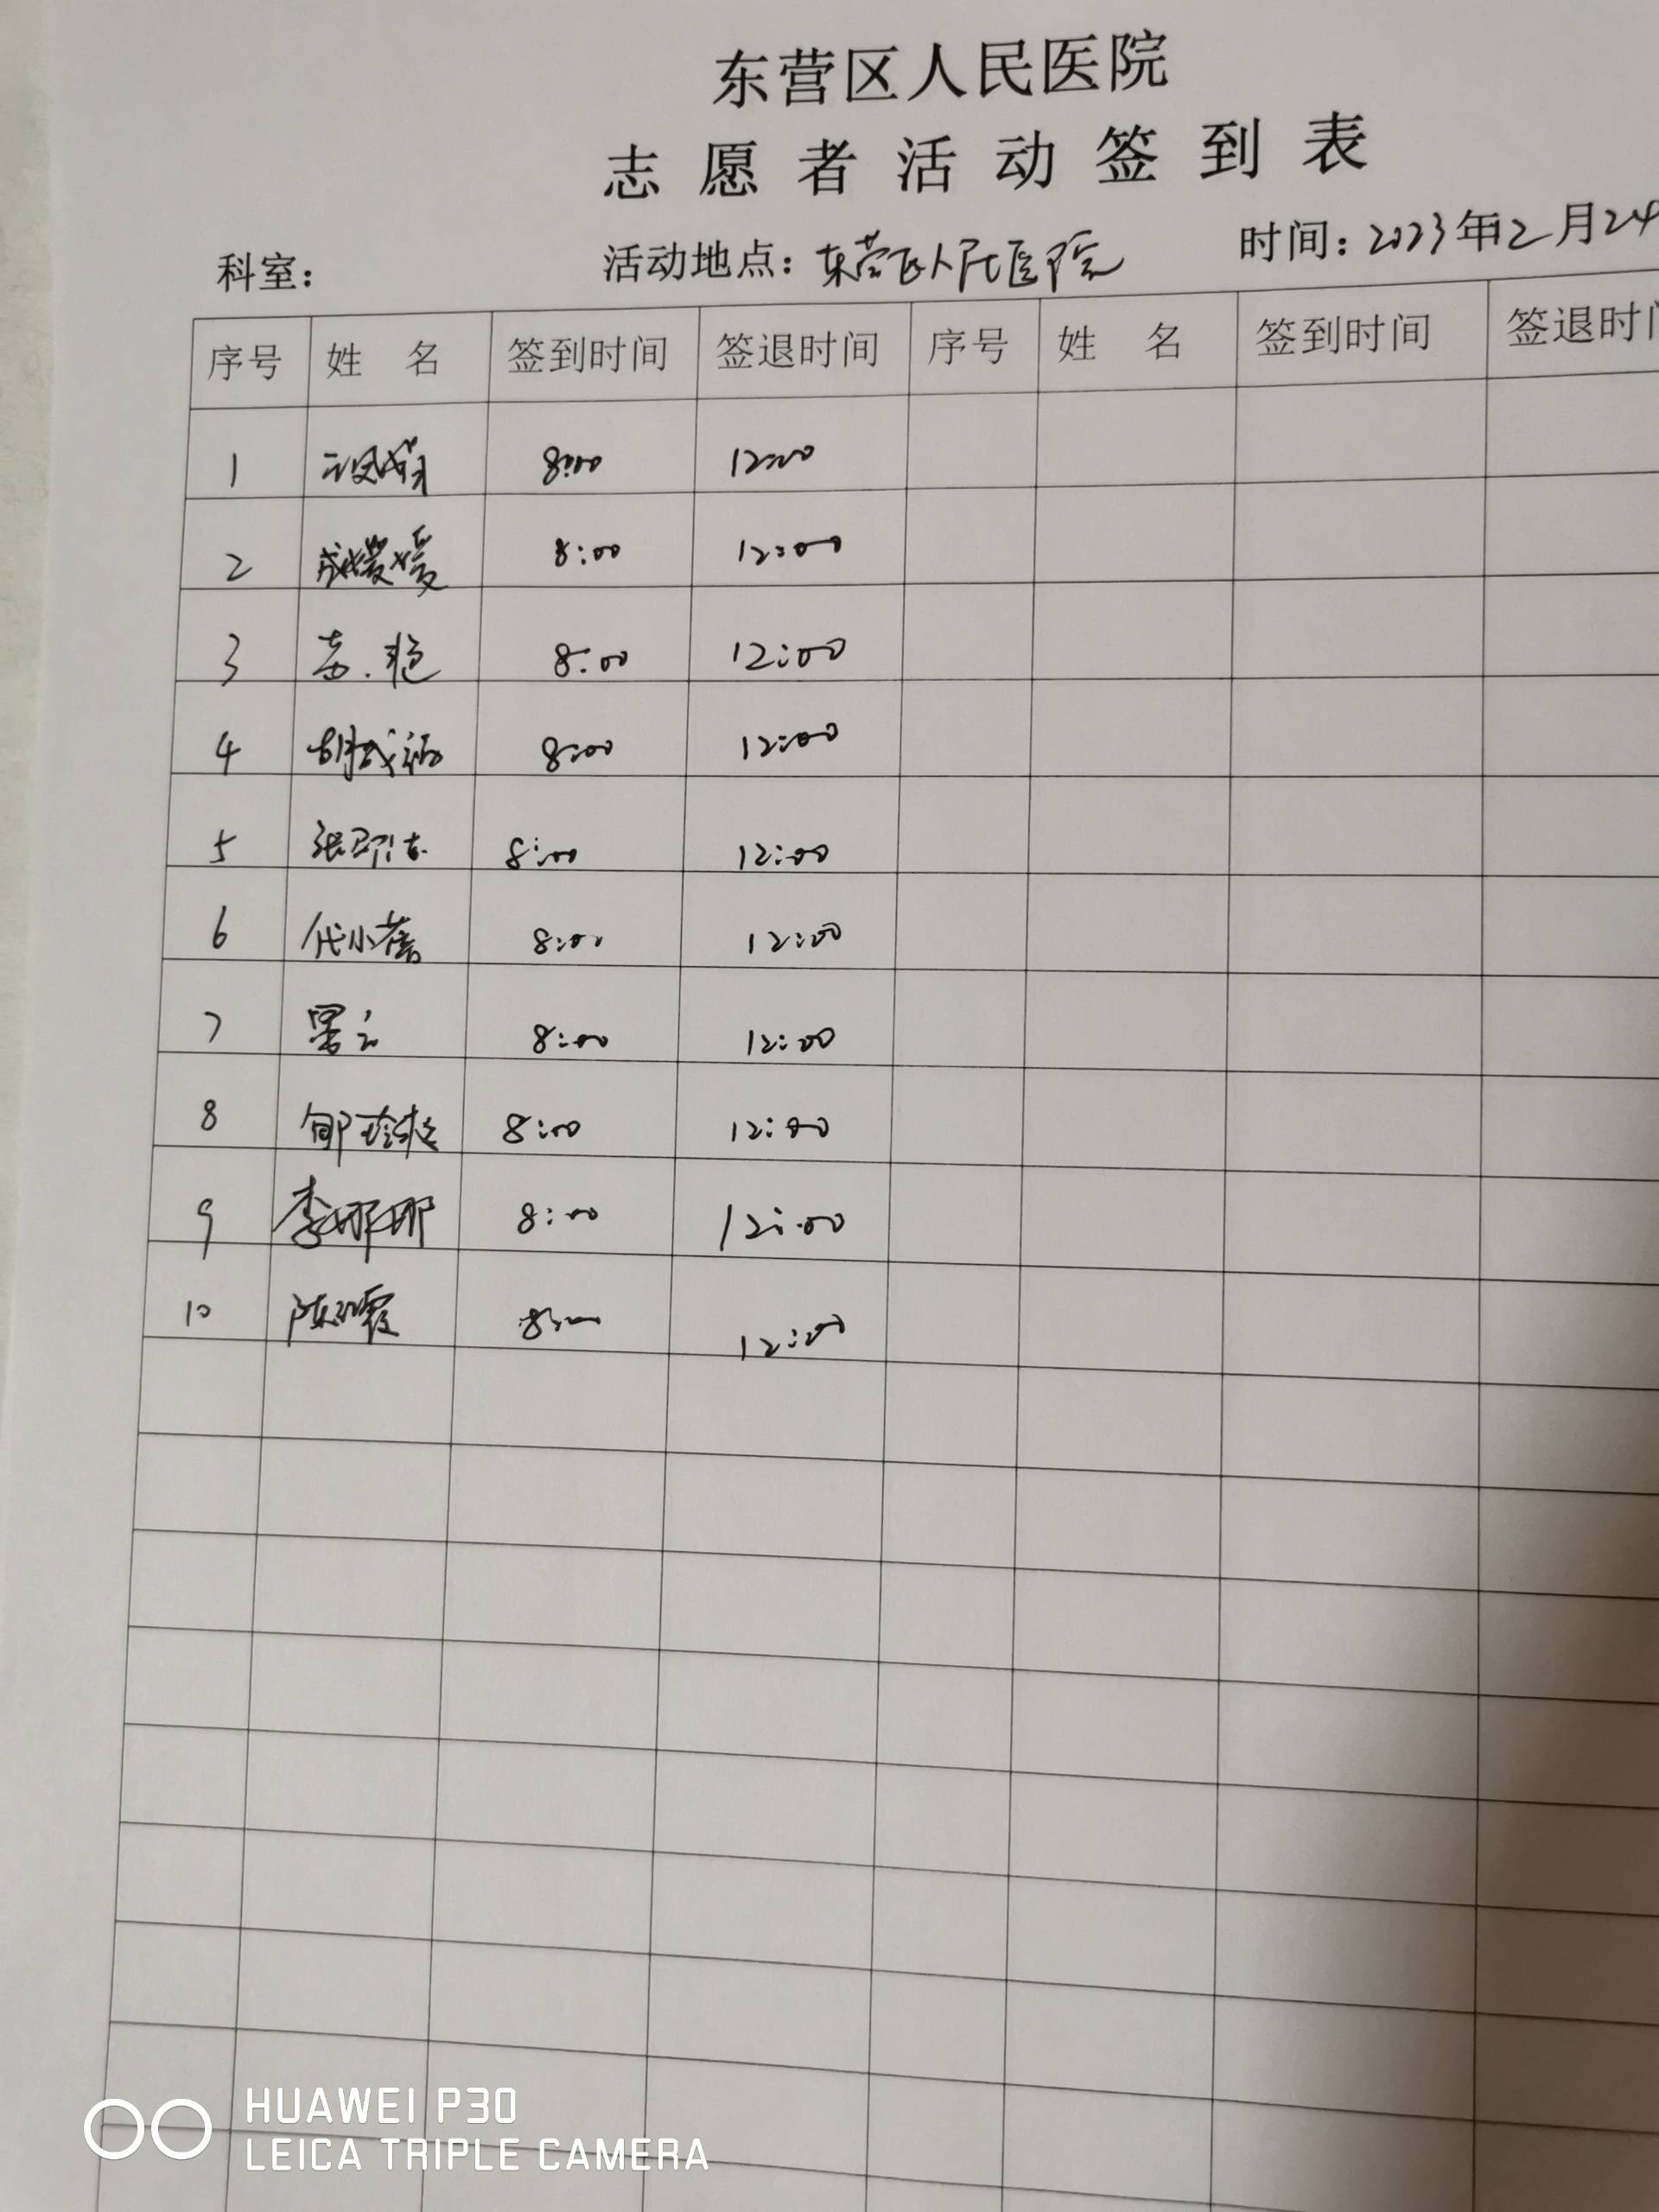 东营区人民医院
志愿者活动签到表
科室： 活动地点：东营区人民医院 时间：2023年2月24
序号 姓 名 签到时间 签退时间 序号 姓 名 签到时间 签退时
1 8:00 12:00
2 成媛媛 8:00 12:00
3 8:00 12:00
4 8:00 12:00
5 8:00 12:00
6 代小蕾 8:00 12:00
7 8:00 12:00
8 8:00 12:00
9 李娜娜 8:00 12:00
10 8:00 12:00
HUAWEI P30
LEICA TRIPLE CAMERA